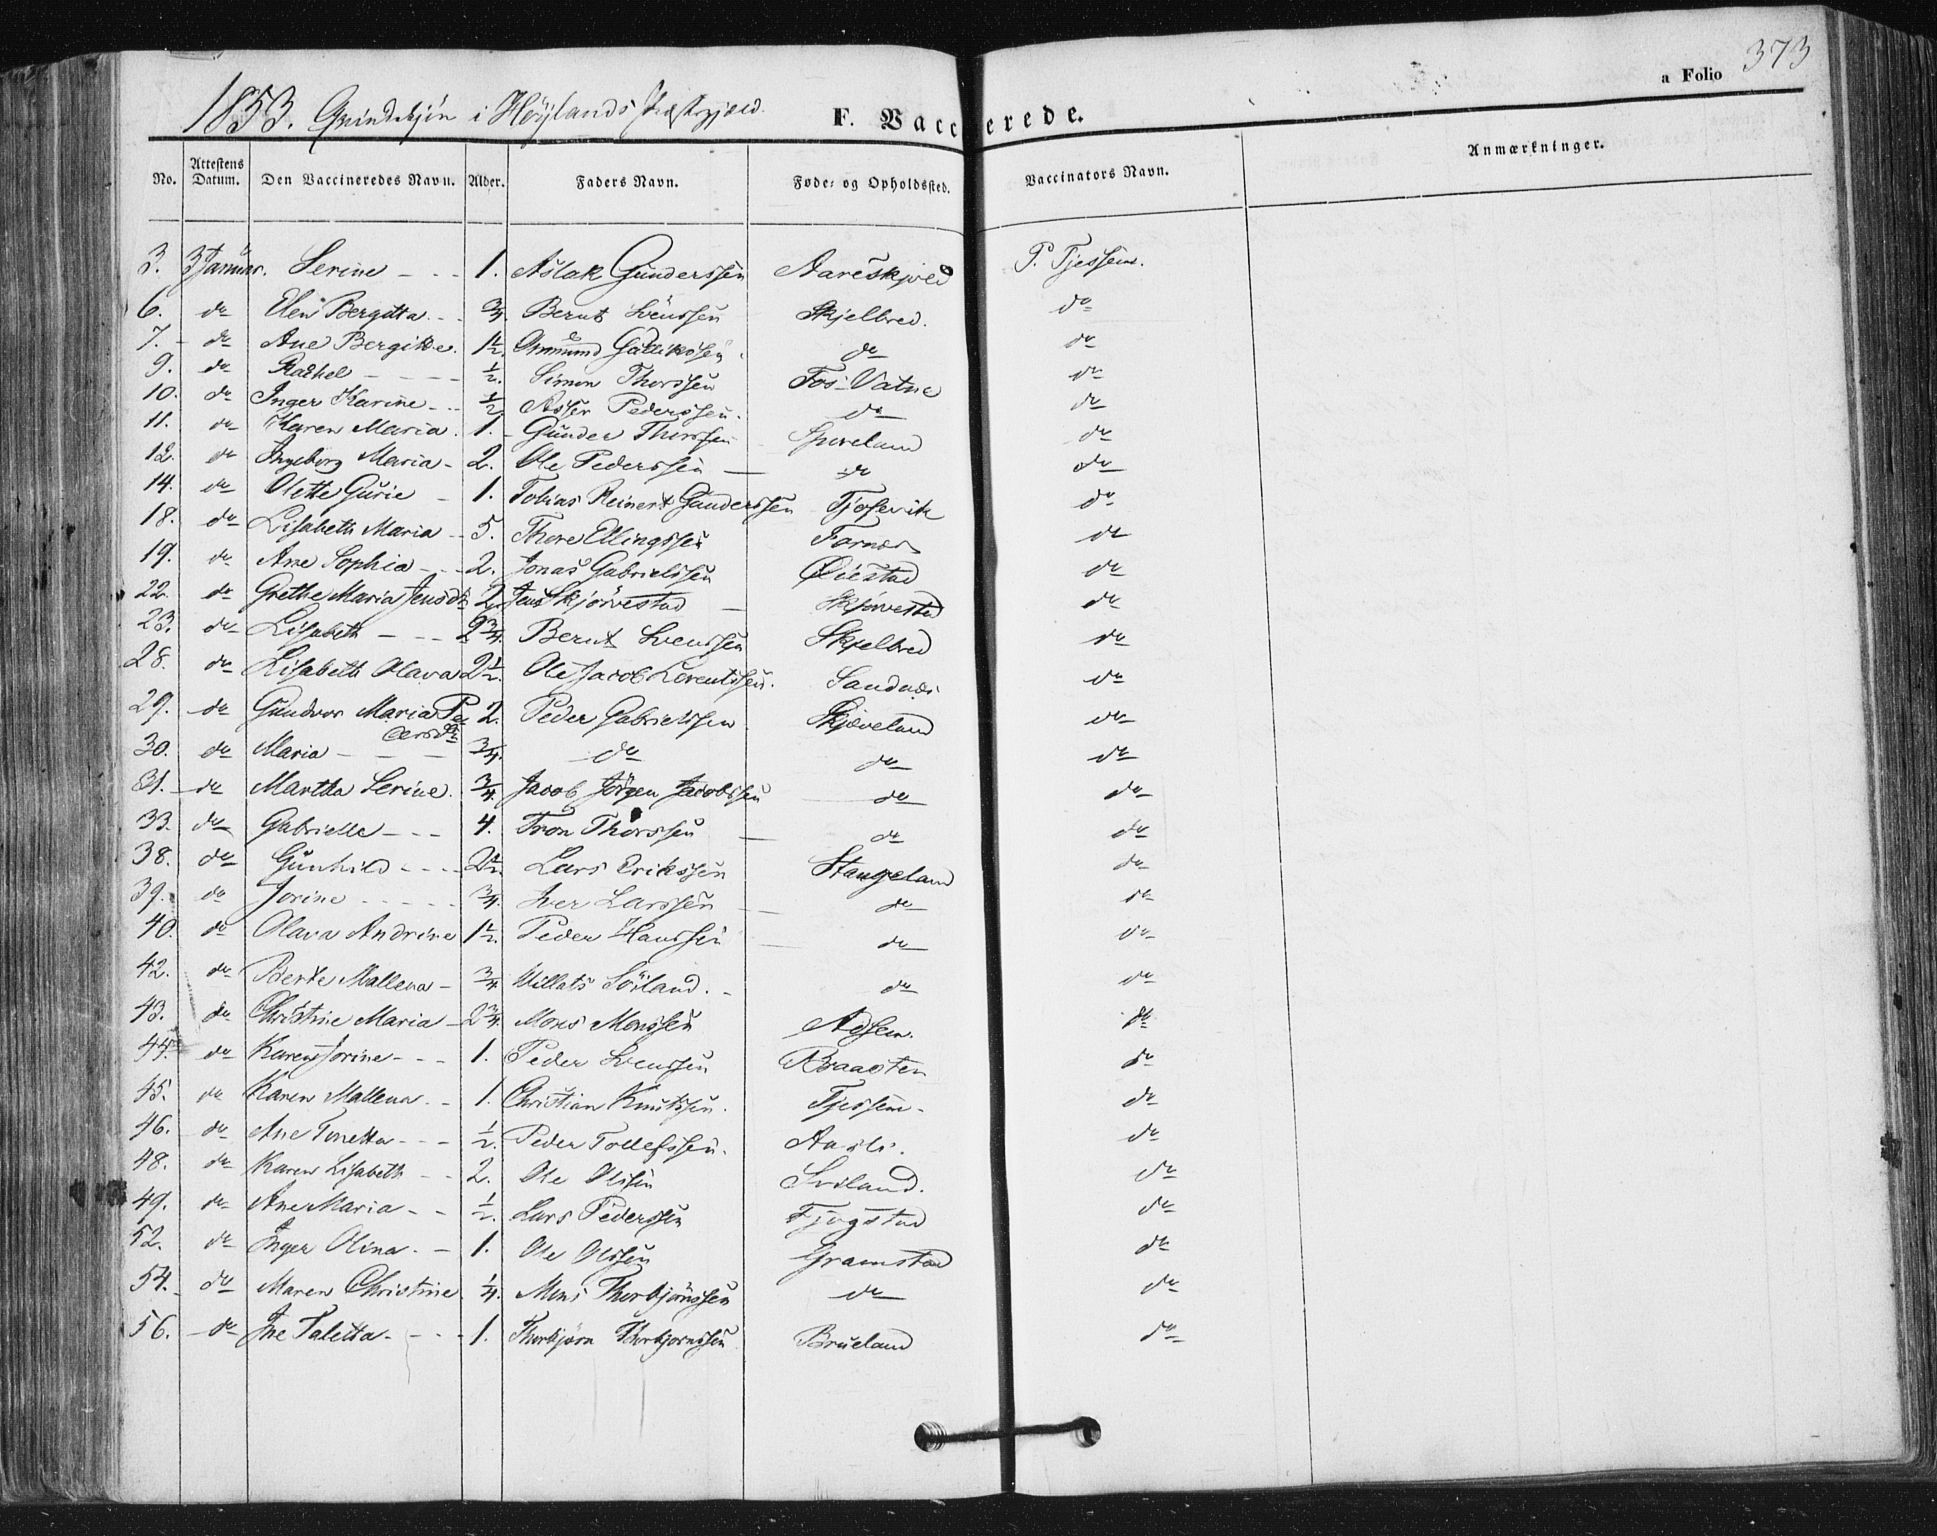 373
a Folio
1853. Qvindekjön i Höylands Præstegjeld.
F. Vaccinerede.
No. Attestens Datum. Den Vaccineredes Navn. Alder. Faders Navn. Føde- og Opholdssted. Vaccinators Navn. Anmærkninger.
3. 3 Januar. Serine - - - 1. Aslak Gunderssen Aareskjold P. Tjessem.
6. do Elen Bergitta - - 3/4. Bernt Svenssen Skjelbred. do
7. - do Ane Bergitte. 1 1/2. Ommund do
9. do Rachel - - - - 1/2. Simon Thorssen Fos-Vatne do
10. do Inger Karine - - 1/2 Asser Pederssen. do do
11. do Karen Maria. 1. Gunder Thorssen do
12. do Ingeborg Maria - 2. Ole Pederssen — do do
14. do Olette Gurie - 1. Tobias Reinert Gunderssen Tjosevik do
18. do Lisabeth Maria - 5. Thore Ellingssen do
19. do Ane Sophia - - - 2. Jonas Gabrielssen Øiestad do
22. do Grethe Maria Jensdtr 2. Jens Skjörvestad — Skjörvestad do
23. do Lisabeth - - - 2 3/4. Bernt Svenssen Skjelbred do
28. do Lisabeth Olava 2 1/2. Ole Jacob Lorentssen. Sandnæs do
29. - do Gundvor Maria Pe 2. Peder Gabrielssen Skjæveland do
dersdtr
30. do Maria - - - 3/4. do do do
31. - do Martha Serine. 3/4 Jacob Jörgen Jacobssen do do
33. do Gabrielle - - - 4. Tron Thorssen — do do
38. do Gunhild - - - - 2 1/2. Lars Erikssen Stangeland do
39. do Jorine - - - - - 3/4. Iver Larssen — do do
40. do Olava Andrine 1 1/2. Peder Hanssen do do
42. do Berte Mallena - 3/4 Söiland. - do do
43. do Christine Maria - 2 3/4. Mons Monssen Adsem. do
44. do Karen Jorine - - - 1. Peder Svenssen Braasten do
45. do Karen Mallena. - 1. Christian Knutssen. Tjessem - do
46. do Ane Tonetta - - - 1/2. Peder Tollefssen. do
48. do Karen Lisabeth - - 2. Ole Olssen Sviland. do
49. do Ane Maria - - 1/2. Lars Pederssen Fjogstad do
52. do Inger Olina. - 1. Ole Olssen Gramstad do
54. do Maren Christine 1/4. Mons Thorbjörnssen do do
56. - do Ane Taletta - - - - 1. Thorbjörn Thorbjornssen Brueland do